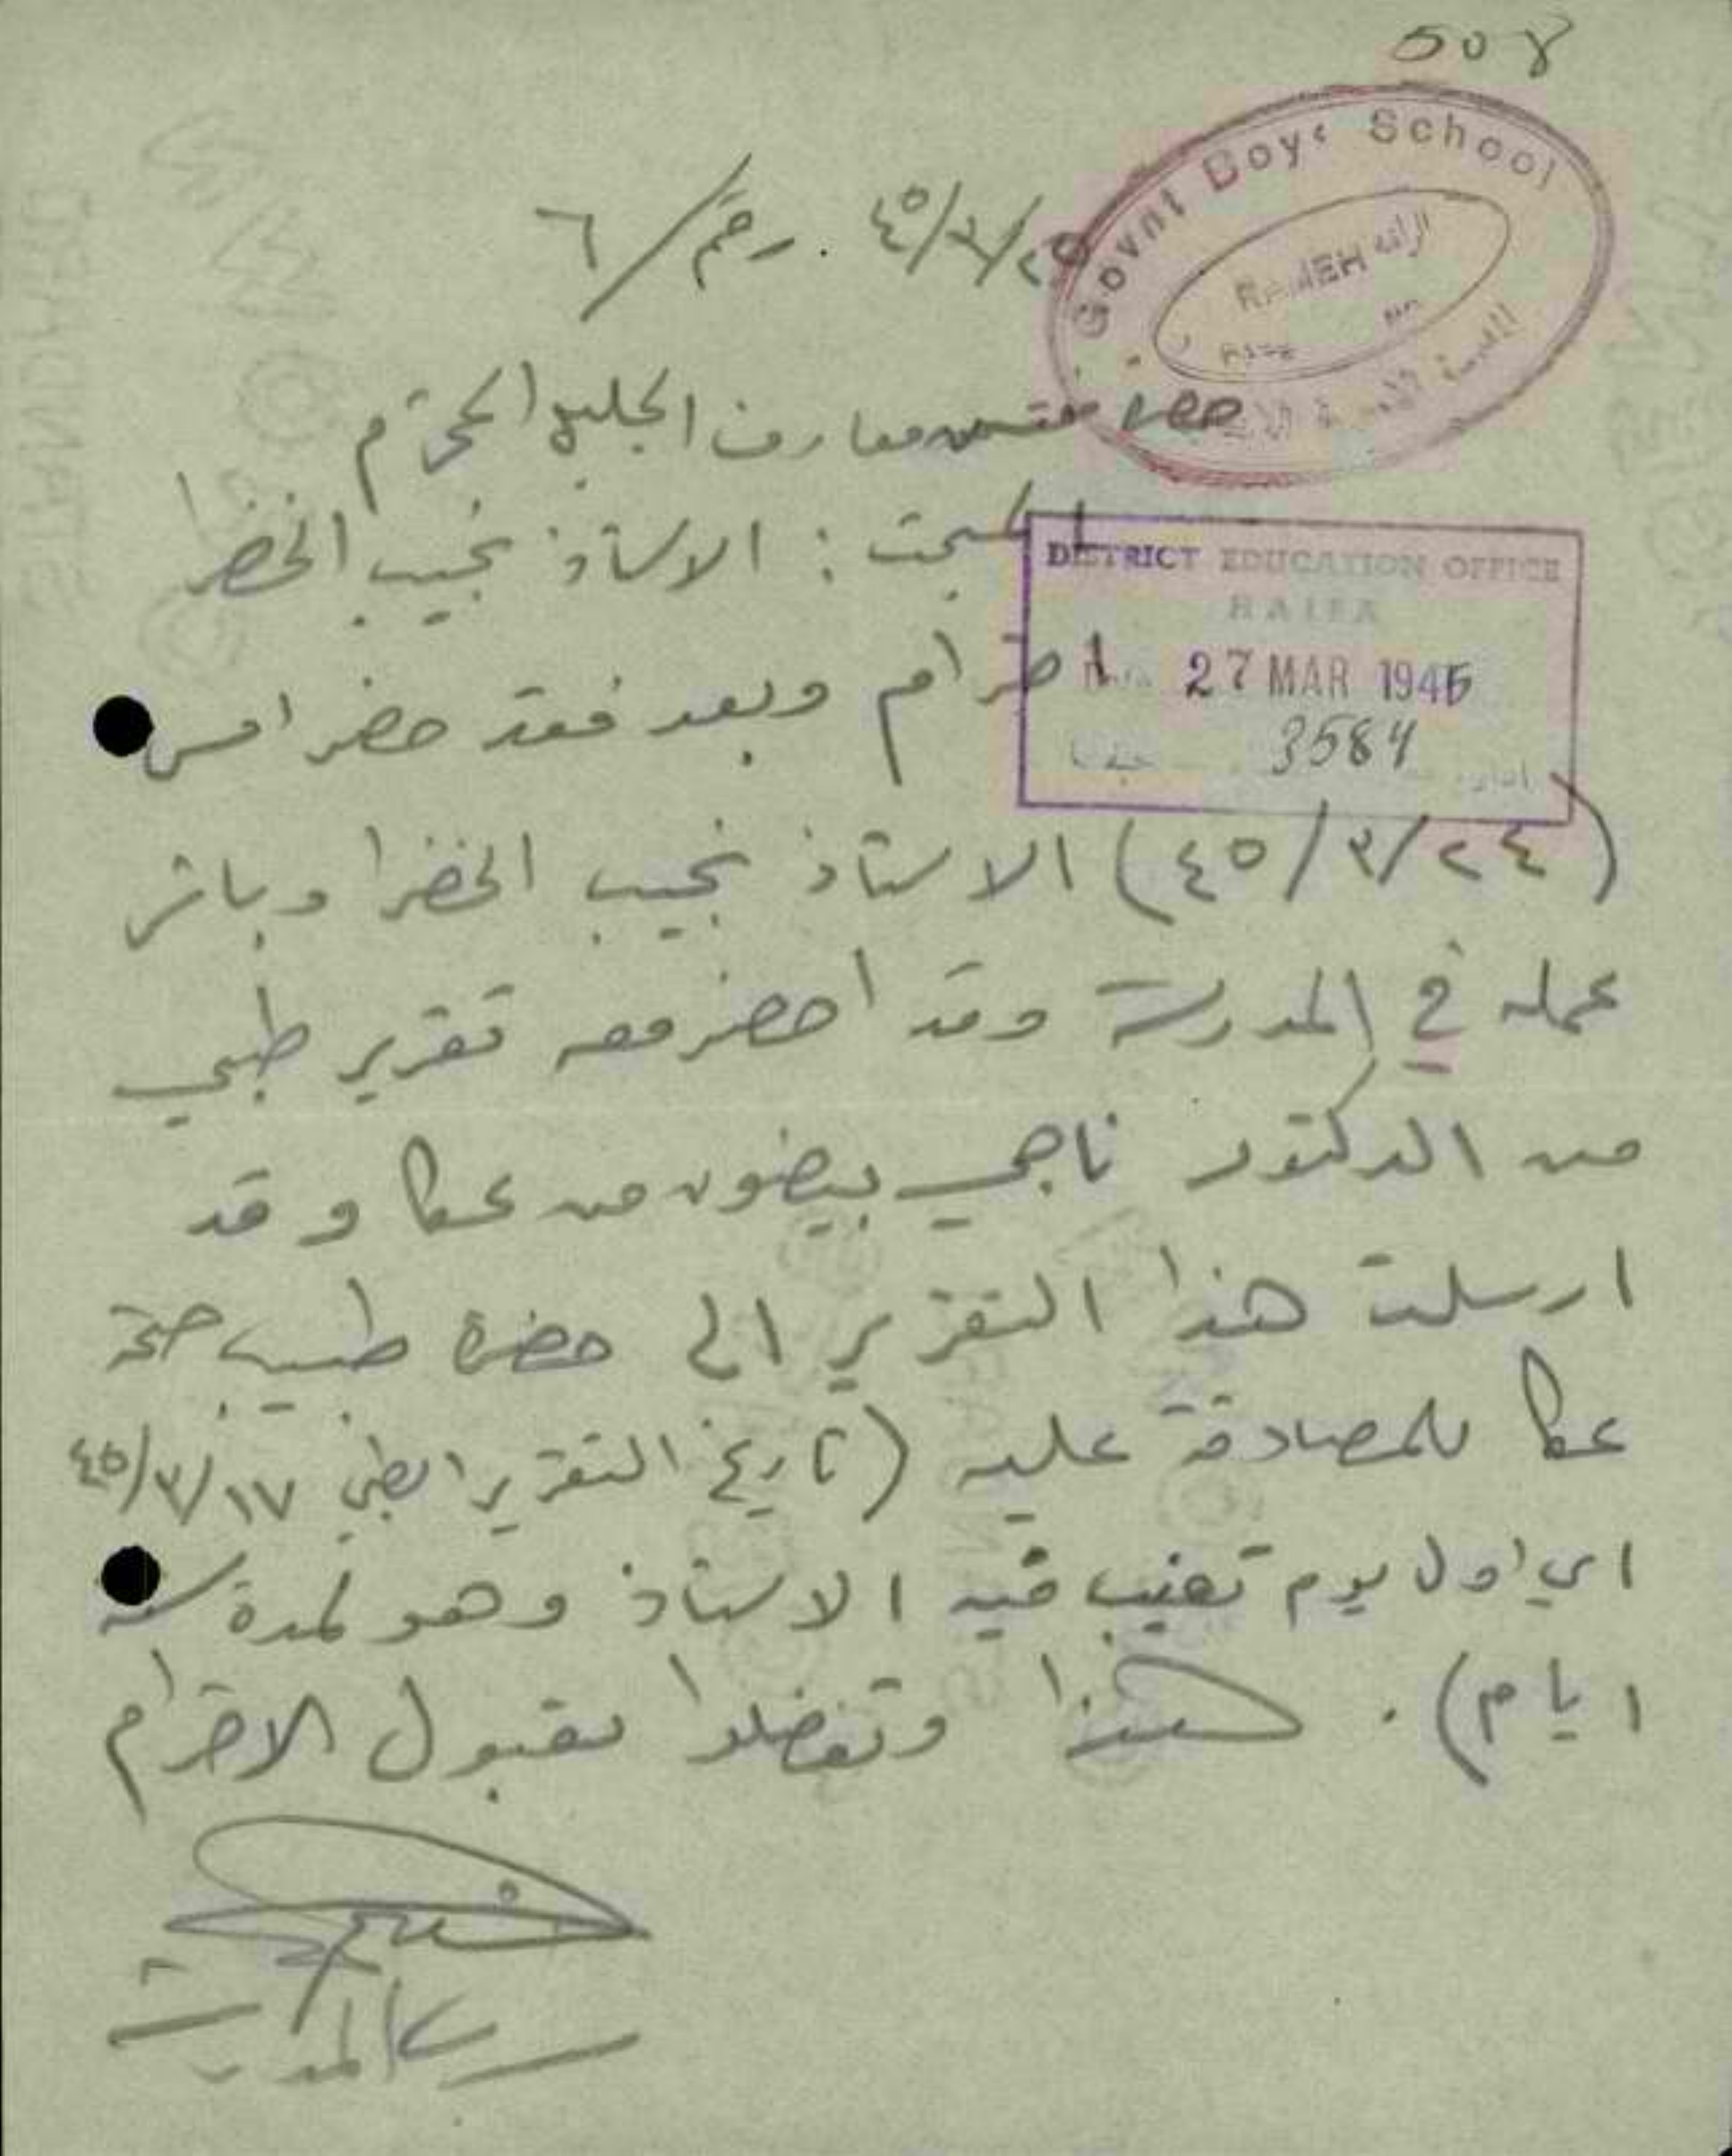 508
Govnt Boys School
الرامه
RAMEH
٢٥/٣/٤٥ . رقم / ٦
حضرة مفتش معارف الجليل المحترم
المبحث : الاستاذ نجيب الخضرا
DISTRICT EDUCATION OFFICE
HAIFA
27 MAR 1945
3584
احترام وبعد فقد حضر امس
(٢٤/٣/٤٥) الاستاذ نجيب الخضرا وباشر
عمله في المدرسة وقد احضر معه تقرير طبي
من الدكتور ناجي بيضون من عكا وقد
ارسلت هذا التقرير الى حضرة طبيب صحة
عكا للمصادقة عليه (تاريخ التقرير الطبي ١٧/٣/٤٥
اي اول يوم تغيب فيه الاستاذ وهو لمدة ستة
ايام) . هذا وتفضلوا بقبول الاحترام
المدرسة